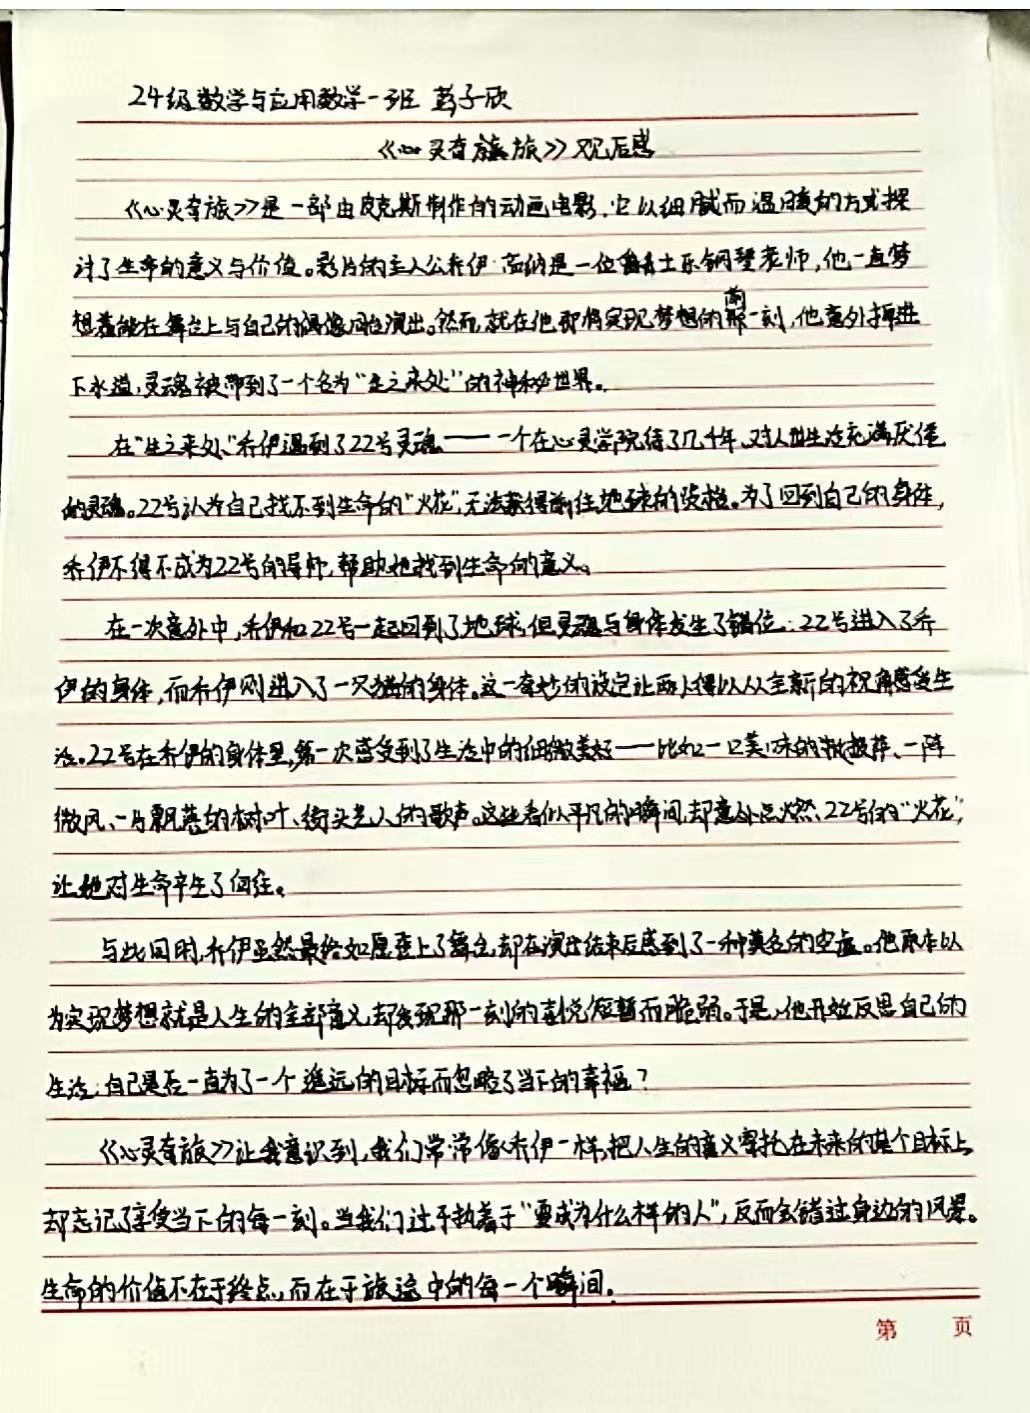 24级数学与应用数学一班 彭子欣
《心灵奇旅》观后感
《心灵奇旅》是一部由皮克斯制作的动画电影,它以细腻而温暖的方式探
讨了生命的意义与价值。影片的主人公乔伊·高纳是一位爵士乐钢琴老师,他一直梦
想着能在舞台上与自己的偶像同台演出。然而,就在他即将实现梦想的前一刻,他意外掉进
下水道,灵魂被带到了一个名为“生之来处”的神秘世界。
在“生之来处”乔伊遇到了22号灵魂——一个在心灵学院待了几千年、对人世生活充满厌倦
的灵魂。22号认为自己找不到生命的“火花”,无法获得前往地球的资格。为了回到自己的身体,
乔伊不得不成为22号的导师,帮助她找到生命的意义。
在一次意外中,乔伊和22号一起回到了地球,但灵魂与身体发生了错位:22号进入了乔
伊的身体,而乔伊则进入了一只猫的身体。这一奇妙的设定让两人得以从全新的视角感受生
活。22号在乔伊的身体里,第一次感受到了生活中的细微美好——比如一口美味的披萨、一阵
微风、一片飘落的树叶、街头艺人的歌声。这些看似平凡的瞬间,却意外点燃22号的“火花”,
让她对生命产生了向往。
与此同时,乔伊虽然最终如愿登上了舞台,却在演出结束后感到了一种莫名的空虚。他原本以
为实现梦想就是人生的全部意义,却发现那一刻的喜悦短暂而脆弱。于是,他开始反思自己的
生活,自己是否一直为了一个遥远的目标而忽略了当下的幸福?
《心灵奇旅》让我意识到,我们常常像乔伊一样,把人生的意义寄托在未来的某个目标上,
却忘记了享受当下的每一刻。当我们过于执着于“要成为什么样的人”,反而会错过身边的风景。
生命的价值不在于终点,而在于旅途中的每一个瞬间。
第 页